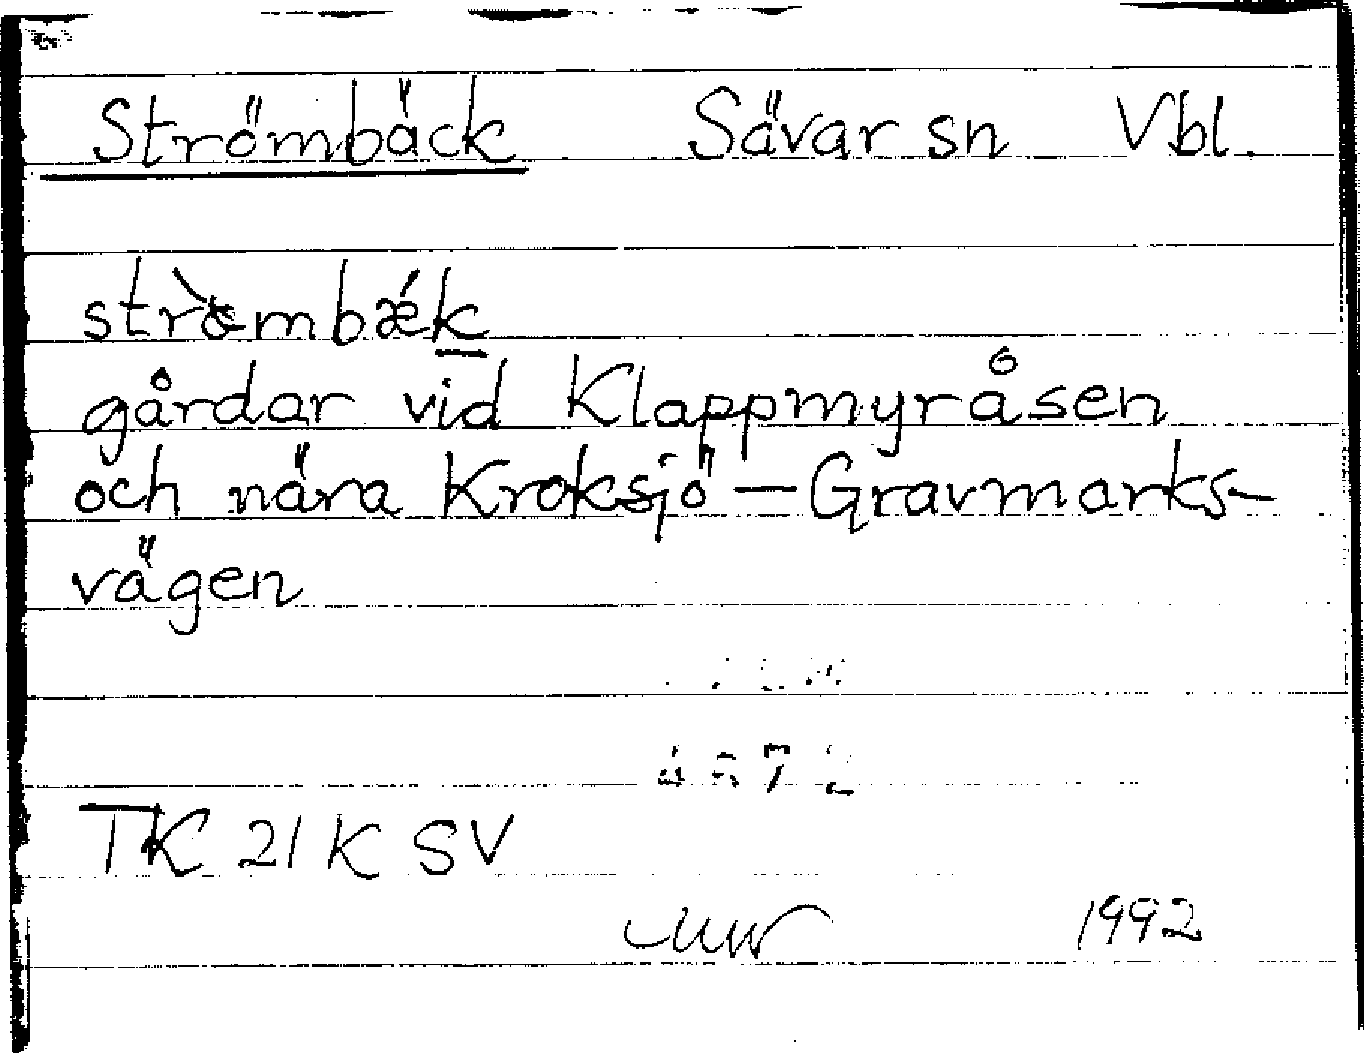 Strömbäck Sävar sn Vbl.
strömbæ̀k
gårdar vid Klappmyråsen
och nära Kroksjö – Gravmarks-
vägen
TK 21 K SV
1992